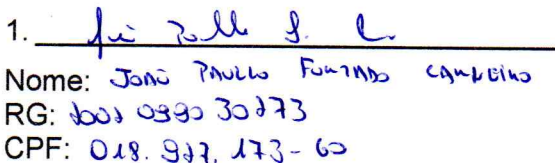 1.
Nome: JOÃO PAULLO FURTADO CARNEIRO
RG: 2002 0990 30273
CPF: 018.927.173-60